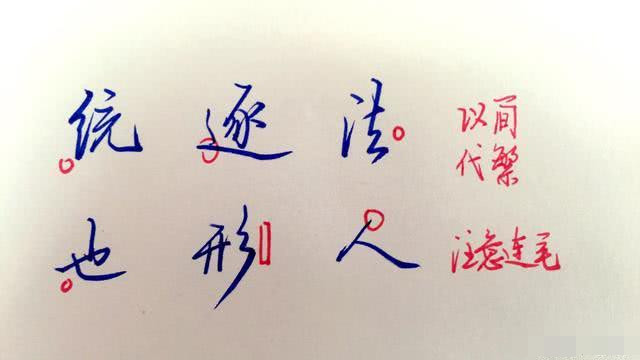 统 逐 法
以简
代繁
也 形 人
注意连笔